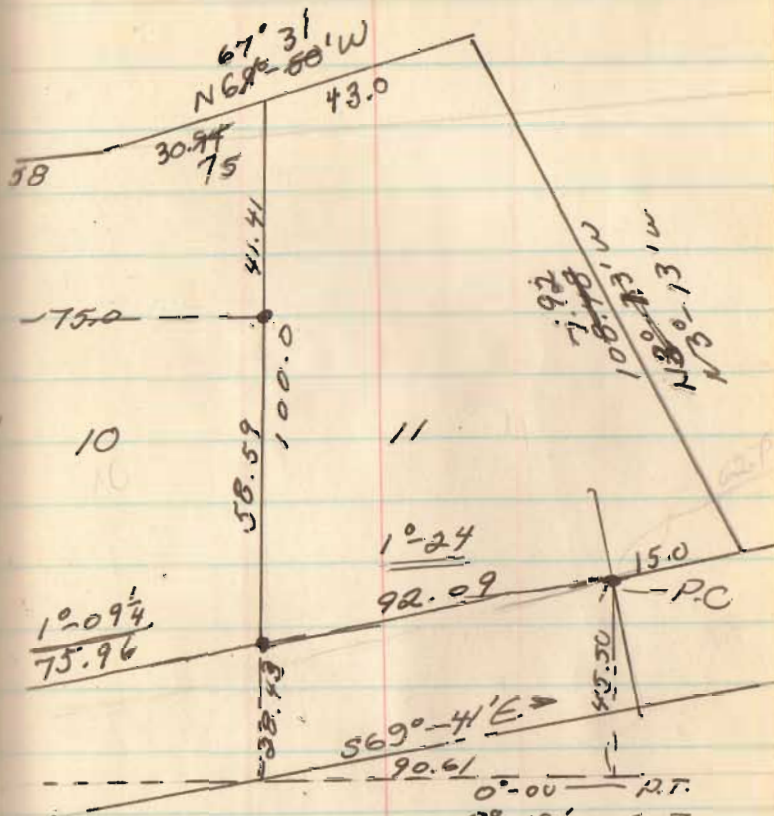 67° 31
N 69°-50' W
43.0
30.94
75
58
41.41
75.0
100.0
58.59
10
11
7.92
108.48
N3°-13' W
1°-24
92.09
15.0
P.C
1°-09 1/4
75.96
38.43
45.50
S69°-41'E.
90.61
0°-00
P.T.